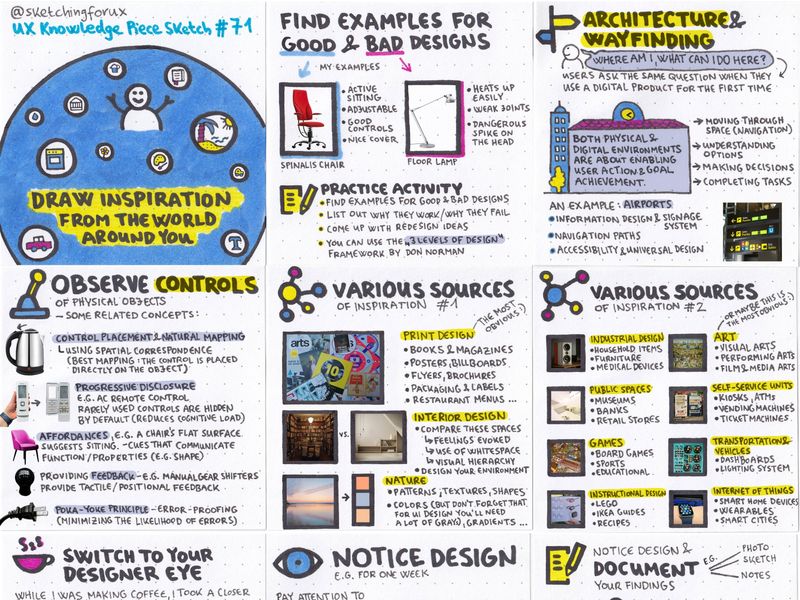 @sketchingforux
UX Knowledge Piece Sketch #71
DRAW INSPIRATION
FROM THE WORLD
AROUND YOU
FIND EXAMPLES FOR
GOOD & BAD DESIGNS
MY EXAMPLES
• ACTIVE
SITTING
• ADJUSTABLE
• GOOD
CONTROLS
• NICE COVER
SPINALIS CHAIR
• HEATS UP
EASILY
• WEAK JOINTS
• DANGEROUS
SPIKE ON
THE HEAD
FLOOR LAMP
PRACTICE ACTIVITY
• FIND EXAMPLES FOR GOOD & BAD DESIGNS
• LIST OUT WHY THEY WORK/WHY THEY FAIL
• COME UP WITH REDESIGN IDEAS
• YOU CAN USE THE „3 LEVELS OF DESIGN"
FRAMEWORK BY DON NORMAN
ARCHITECTURE &
WAYFINDING
WHERE AM I, WHAT CAN I DO HERE?
USERS ASK THE SAME QUESTION WHEN THEY
USE A DIGITAL PRODUCT FOR THE FIRST TIME
BOTH PHYSICAL &
DIGITAL ENVIRONMENTS
ARE ABOUT ENABLING
USER ACTION & GOAL
ACHIEVEMENT.
→ MOVING THROUGH
SPACE (NAVIGATION)
→ UNDERSTANDING
OPTIONS
→ MAKING DECISIONS
→ COMPLETING TASKS
AN EXAMPLE: AIRPORTS
• INFORMATION DESIGN & SIGNAGE
SYSTEM
• NAVIGATION PATHS
• ACCESSIBILITY & UNIVERSAL DESIGN
OBSERVE CONTROLS
OF PHYSICAL OBJECTS
~ SOME RELATED CONCEPTS:
CONTROL PLACEMENT & NATURAL MAPPING
↳ USING SPATIAL CORRESPONDENCE
(BEST MAPPING: THE CONTROL IS PLACED
DIRECTLY ON THE OBJECT)
PROGRESSIVE DISCLOSURE
E.G. AC REMOTE CONTROL
RARELY USED CONTROLS ARE HIDDEN
BY DEFAULT (REDUCES COGNITIVE LOAD)
AFFORDANCES, E.G. A CHAIR'S FLAT SURFACE
SUGGESTS SITING. ~CUES THAT COMMUNICATE
FUNCTION/PROPERTIES (E.G. SHAPE)
PROVIDING FEEDBACK - E.G. MANUAL GEAR SHIFTERS
PROVIDE TACTILE/POSITIONAL FEEDBACK
POKA-YOKE PRINCIPLE - ERROR-PROOFING
(MINIMIZING THE LIKELIHOOD OF ERRORS)
VARIOUS SOURCES
OF INSPIRATION #1
THE MOST
OBVIOUS :)
arts
10
PRINT DESIGN
• BOOKS & MAGAZINES
• POSTERS, BILLBOARDS
• FLYERS, BROCHURES
• PACKAGING & LABELS
• RESTAURANT MENUS ...
VS.
INTERIOR DESIGN
• COMPARE THESE SPACES
↳ FEELINGS EVOKED
↳ USE OF WHITESPACE
↳ VISUAL HIERARCHY
• DESIGN YOUR ENVIRONMENT
NATURE
• PATTERNS, TEXTURES, SHAPES
• COLORS (BUT DON'T FORGET THAT
FOR UI DESIGN YOU'LL NEED
A LOT OF GRAY), GRADIENTS ...
VARIOUS SOURCES
OF INSPIRATION #2
OR MAYBE THIS IS
THE MOST OBVIOUS :)
INDUSTRIAL DESIGN
• HOUSEHOLD ITEMS
• FURNITURE
• MEDICAL DEVICES
ART
• VISUAL ARTS
• PERFORMING ARTS
• FILM & MEDIA ARTS
PUBLIC SPACES
• MUSEUMS
• BANKS
• RETAIL STORES
SELF-SERVICE UNITS
• KIOSKS, ATMS
• VENDING MACHINES
• TICKET MACHINES
GAMES
• BOARD GAMES
• SPORTS
• EDUCATIONAL
TRANSPORTATION &
VEHICLES
• DASHBOARDS
• LIGHTING SYSTEM
INSTRUCTIONAL DESIGN
• LEGO
• IKEA GUIDES
• RECIPES
INTERNET OF THINGS
• SMART HOME DEVICES
• WEARABLES
• SMART CITIES
SWITCH TO YOUR
DESIGNER EYE
WHILE I WAS MAKING COFFEE, I TOOK A CLOSER
NOTICE DESIGN
E.G. FOR ONE WEEK
PAY ATTENTION TO
NOTICE DESIGN &
DOCUMENT
YOUR FINDINGS
E.G.
PHOTO
SKETCH
NOTES